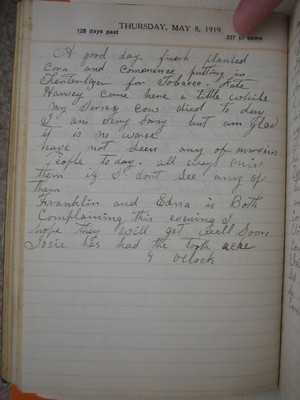 THURSDAY, MAY 8, 1919
128 days past
237 to come
A good day finish planted
Corn and commence putting in
for Tobacco. Kate
Harvey come here a little while
my Jersey cow died to day
I am very sorry but am glad
it is no worse
have not seen any of
People to day. all ways miss
them if I dont see any of
them
Franklin and Edna is Both
Complaining this evening I
hope they will get well Soon
Josie has had the tooth ache
oclock